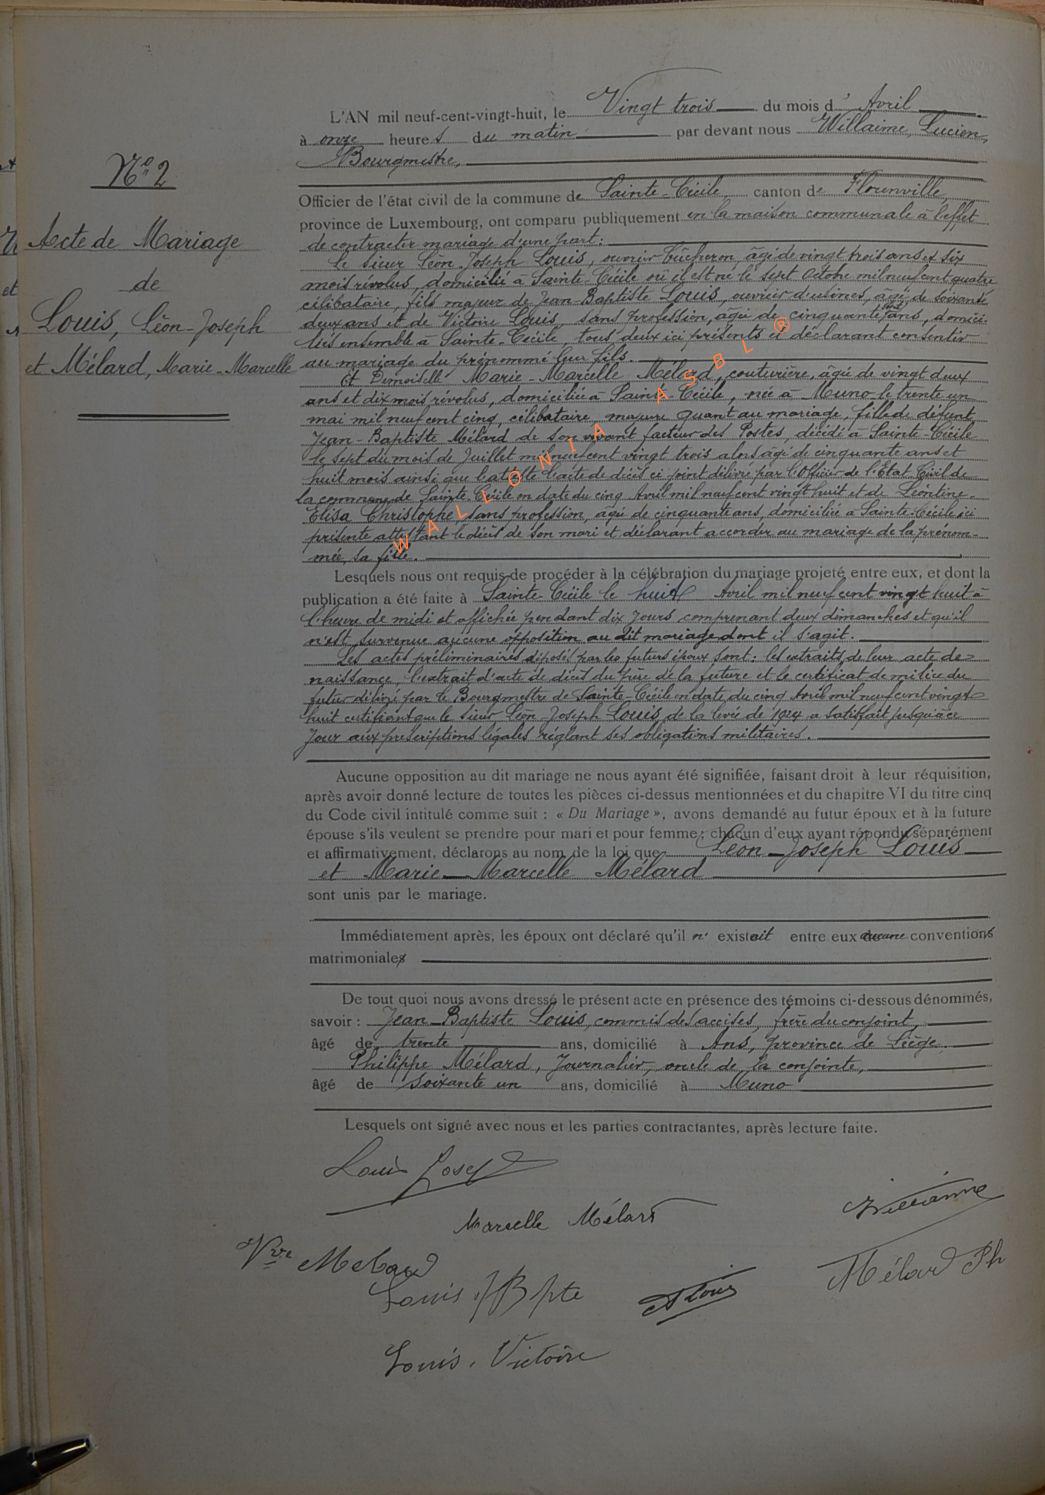 N° 2
Acte de Mariage
de
Louis, Léon-Joseph
et Mélard, Marie-Marcelle
L'AN mil neuf-cent-vingt-huit, le Vingt trois du mois d' Avril
à onze heures du matin par devant nous Willaime, Lucien,
Bourgmestre,
Officier de l'état civil de la commune de Sainte-Cécile canton de Florenville,
province de Luxembourg, ont comparu publiquement en la maison communale à l'effet
de contracter mariage d'une part :
Le sieur Léon-Joseph Louis, ouvrier bûcheron, âgé de vingt trois ans et six
mois révolus, domicilié à Sainte-Cécile où il est né le sept Octobre mil neuf cent quatre
célibataire, fils majeur de Jean-Baptiste Louis, ouvrier d'usines, âgé de soixante
deux ans et de Victoire Louis sans profession, âgée de cinquante ans, domici-
liés ensemble à Sainte-Cécile, tous deux ici présents et déclarant consentir
au mariage du prénommé leur fils.
Et Demoiselle Marie-Marcelle Mélard, couturière, âgée de vingt deux
ans et dix mois révolus, domiciliée à Sainte-Cécile, née à Muno le trente un
mai mil neuf cent cinq, célibataire, majeure quant au mariage, fille de défunt
Jean-Baptiste Mélard de son vivant facteur des Postes, décédé à Sainte-Cécile
le sept du mois de Juillet mil neuf cent vingt trois alors âgé de cinquante ans et
huit mois ainsi que l'atteste l'acte de décès ci joint délivré par l'Officier de l'Etat Civil de
la commune de Sainte-Cécile en date du cinq Avril mil neuf cent vingt huit et de Léontine-
Elisa Christophe sans profession, âgée de cinquante ans, domiciliée à Sainte-Cécile ici
présente attestant le décès de son mari et déclarant accorder au mariage de la prénom-
mée, sa fille.
Lesquels nous ont requis de procéder à la célébration du mariage projeté entre eux, et dont la
publication a été faite à Sainte-Cécile le huit Avril mil neuf cent vingt huit à
l'heure de midi et affichée pendant dix jours comprenant deux dimanches et qu'il
n'est survenue aucune opposition au dit mariage dont il s'agit.
Les actes préliminaires déposés par les futurs époux sont : les extraits de leur acte de
naissance, l'extrait d'acte de décès du père de la future et le certificat de milice du
futur délivré par le Bourgmestre de Sainte-Cécile en date du cinq Avril mil neuf cent vingt
huit certifiant que le sieur Léon-Joseph Louis de la levée de 1924 a satisfait jusqu'à ce
jour aux prescriptions légales réglant ses obligations militaires.
Aucune opposition au dit mariage ne nous ayant été signifiée, faisant droit à leur réquisition,
après avoir donné lecture de toutes les pièces ci-dessus mentionnées et du chapitre VI du titre cinq
du Code civil intitulé comme suit : « Du Mariage », avons demandé au futur époux et à la future
épouse s'ils veulent se prendre pour mari et pour femme ; chacun d'eux ayant répondu séparément
et affirmativement, déclarons au nom de la loi que Léon-Joseph Louis
et Marie-Marcelle Mélard
sont unis par le mariage.
Immédiatement après, les époux ont déclaré qu'il n' existait entre eux aucune conventions
matrimoniales
De tout quoi nous avons dressé le présent acte en présence des témoins ci-dessous dénommés,
savoir : Jean-Baptiste Louis, commis des accises, frère du conjoint,
âgé de trente ans, domicilié à Ans, province de Liège.
Philippe Mélard, Journalier, oncle de la conjointe,
âgé de soixante un ans, domicilié à Muno
Lesquels ont signé avec nous et les parties contractantes, après lecture faite.
Louis Josep
Marcelle Mélard
Willaime
Vve Melard
Mélard Ph
Louis J Bpte
Louis
Louis. Victoire
WALLONIA ASBL ®